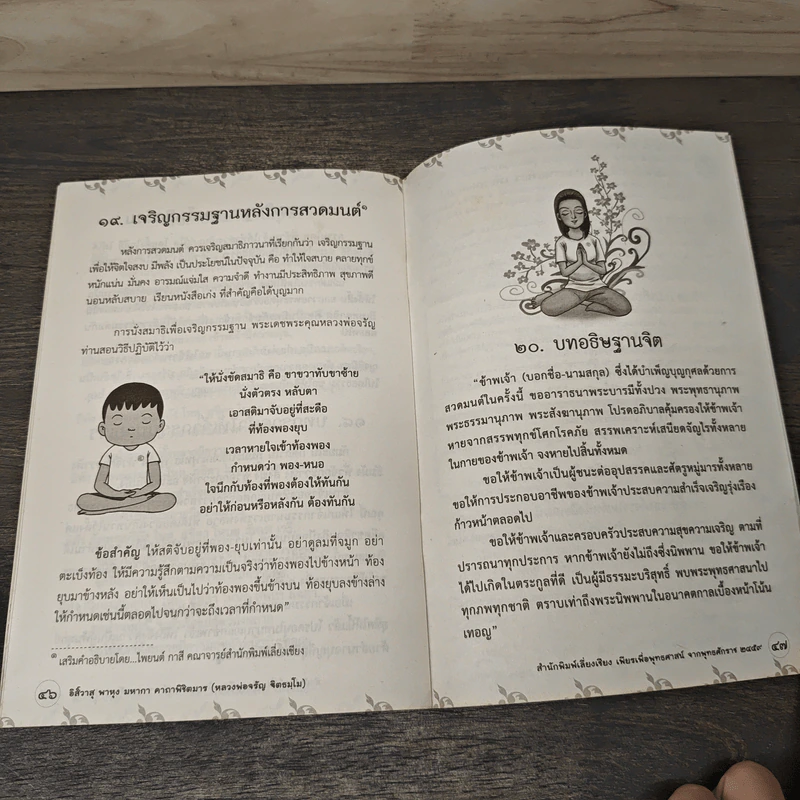 ๑๙. เจริญกรรมฐานหลังการสวดมนต์๑
หลังการสวดมนต์ ควรเจริญสมาธิภาวนาที่เรียกกันว่า เจริญกรรมฐาน
เพื่อให้จิตใจสงบ มีพลัง เป็นประโยชน์ในปัจจุบัน คือ ทำให้ใจสบาย คลายทุกข์
หนักแน่น มั่นคง อารมณ์แจ่มใส ความจำดี ทำงานมีประสิทธิภาพ สุขภาพดี
นอนหลับสบาย เรียนหนังสือเก่ง ที่สำคัญคือได้บุญมาก
การนั่งสมาธิเพื่อเจริญกรรมฐาน พระเดชพระคุณหลวงพ่อจรัญ
ท่านสอนวิธีปฏิบัติไว้ว่า
"ให้นั่งขัดสมาธิ คือ ขาขวาทับขาซ้าย
นั่งตัวตรง หลับตา
เอาสติมาจับอยู่ที่สะดือ
ที่ท้องพองยุบ
เวลาหายใจเข้าท้องพอง
กำหนดว่า พอง-หนอ
ใจนึกกับท้องที่พองต้องให้ทันกัน
อย่าให้ก่อนหรือหลังกัน ต้องทันกัน
ข้อสำคัญ ให้สติจับอยู่ที่พอง-ยุบเท่านั้น อย่าดูลมที่จมูก อย่า
ตะเบ็งท้อง ให้มีความรู้สึกตามความเป็นจริงว่าท้องพองไปข้างหน้า ท้อง
ยุบมาข้างหลัง อย่าให้เห็นเป็นไปว่าท้องพองขึ้นข้างบน ท้องยุบลงข้างล่าง
ให้กำหนดเช่นนี้ตลอดไปจนกว่าจะถึงเวลาที่กำหนด"
๑ เสริมคำอธิบายโดย...ไพยนต์ กาสี คณาจารย์สำนักพิมพ์เลี่ยงเชียง
๔๖ อิสฺวาสุ พาหุง มหากา คาถาพิชิตมาร (หลวงพ่อจรัญ ฐิตธมฺโม)
๒๐. บทอธิษฐานจิต
"ข้าพเจ้า (บอกชื่อ-นามสกุล) ซึ่งได้บำเพ็ญบุญกุศลด้วยการ
สวดมนต์ในครั้งนี้ ขออาราธนาพระบารมีทั้งปวง พระพุทธานุภาพ
พระธรรมานุภาพ พระสังฆานุภาพ โปรดอภิบาลคุ้มครองให้ข้าพเจ้า
หายจากสรรพทุกข์โศกโรคภัย สรรพเคราะห์เสนียดจัญไรทั้งหลาย
ในกายของข้าพเจ้า จงหายไปสิ้นทั้งหมด
ขอให้ข้าพเจ้าเป็นผู้ชนะต่ออุปสรรคและศัตรูหมู่มารทั้งหลาย
ขอให้การประกอบอาชีพของข้าพเจ้าประสบความสำเร็จเจริญรุ่งเรือง
ก้าวหน้าตลอดไป
ขอให้ข้าพเจ้าและครอบครัวประสบความสุขความเจริญ ตามที่
ปรารถนาทุกประการ หากข้าพเจ้ายังไม่ถึงซึ่งนิพพาน ขอให้ข้าพเจ้า
ได้ไปเกิดในตระกูลที่ดี เป็นผู้มีธรรมะบริสุทธิ์ พบพระพุทธศาสนาไป
ทุกภพทุกชาติ ตราบเท่าถึงพระนิพพานในอนาคตกาลเบื้องหน้าโน้น
เทอญ"
สำนักพิมพ์เลี่ยงเชียง เพียรเพื่อพุทธศาสน์ จากพุทธศักราช ๒๔๕๙ ๔๗